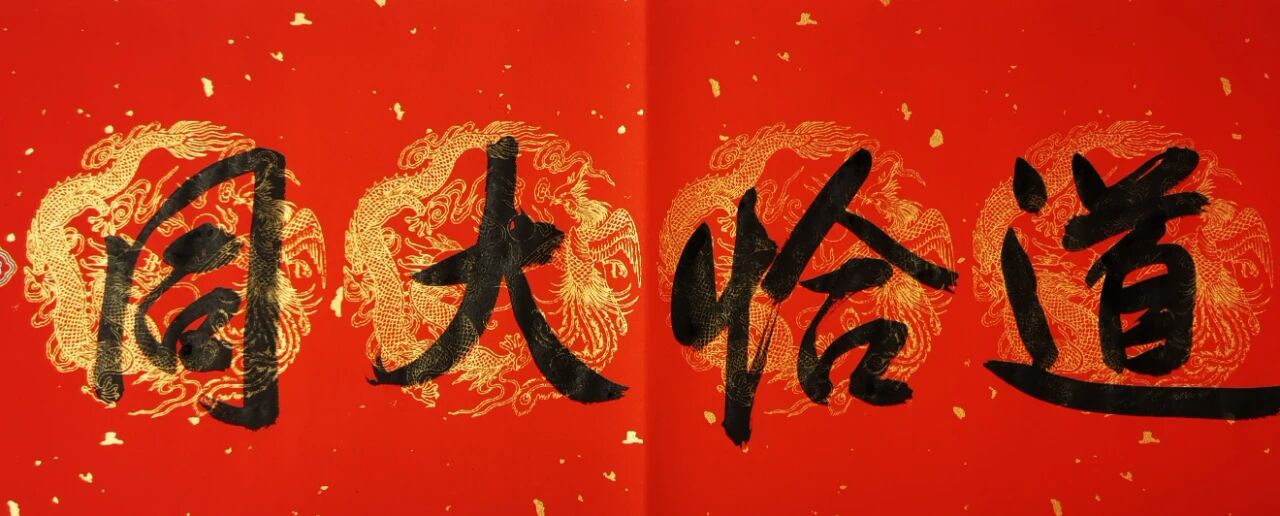 道恰大同